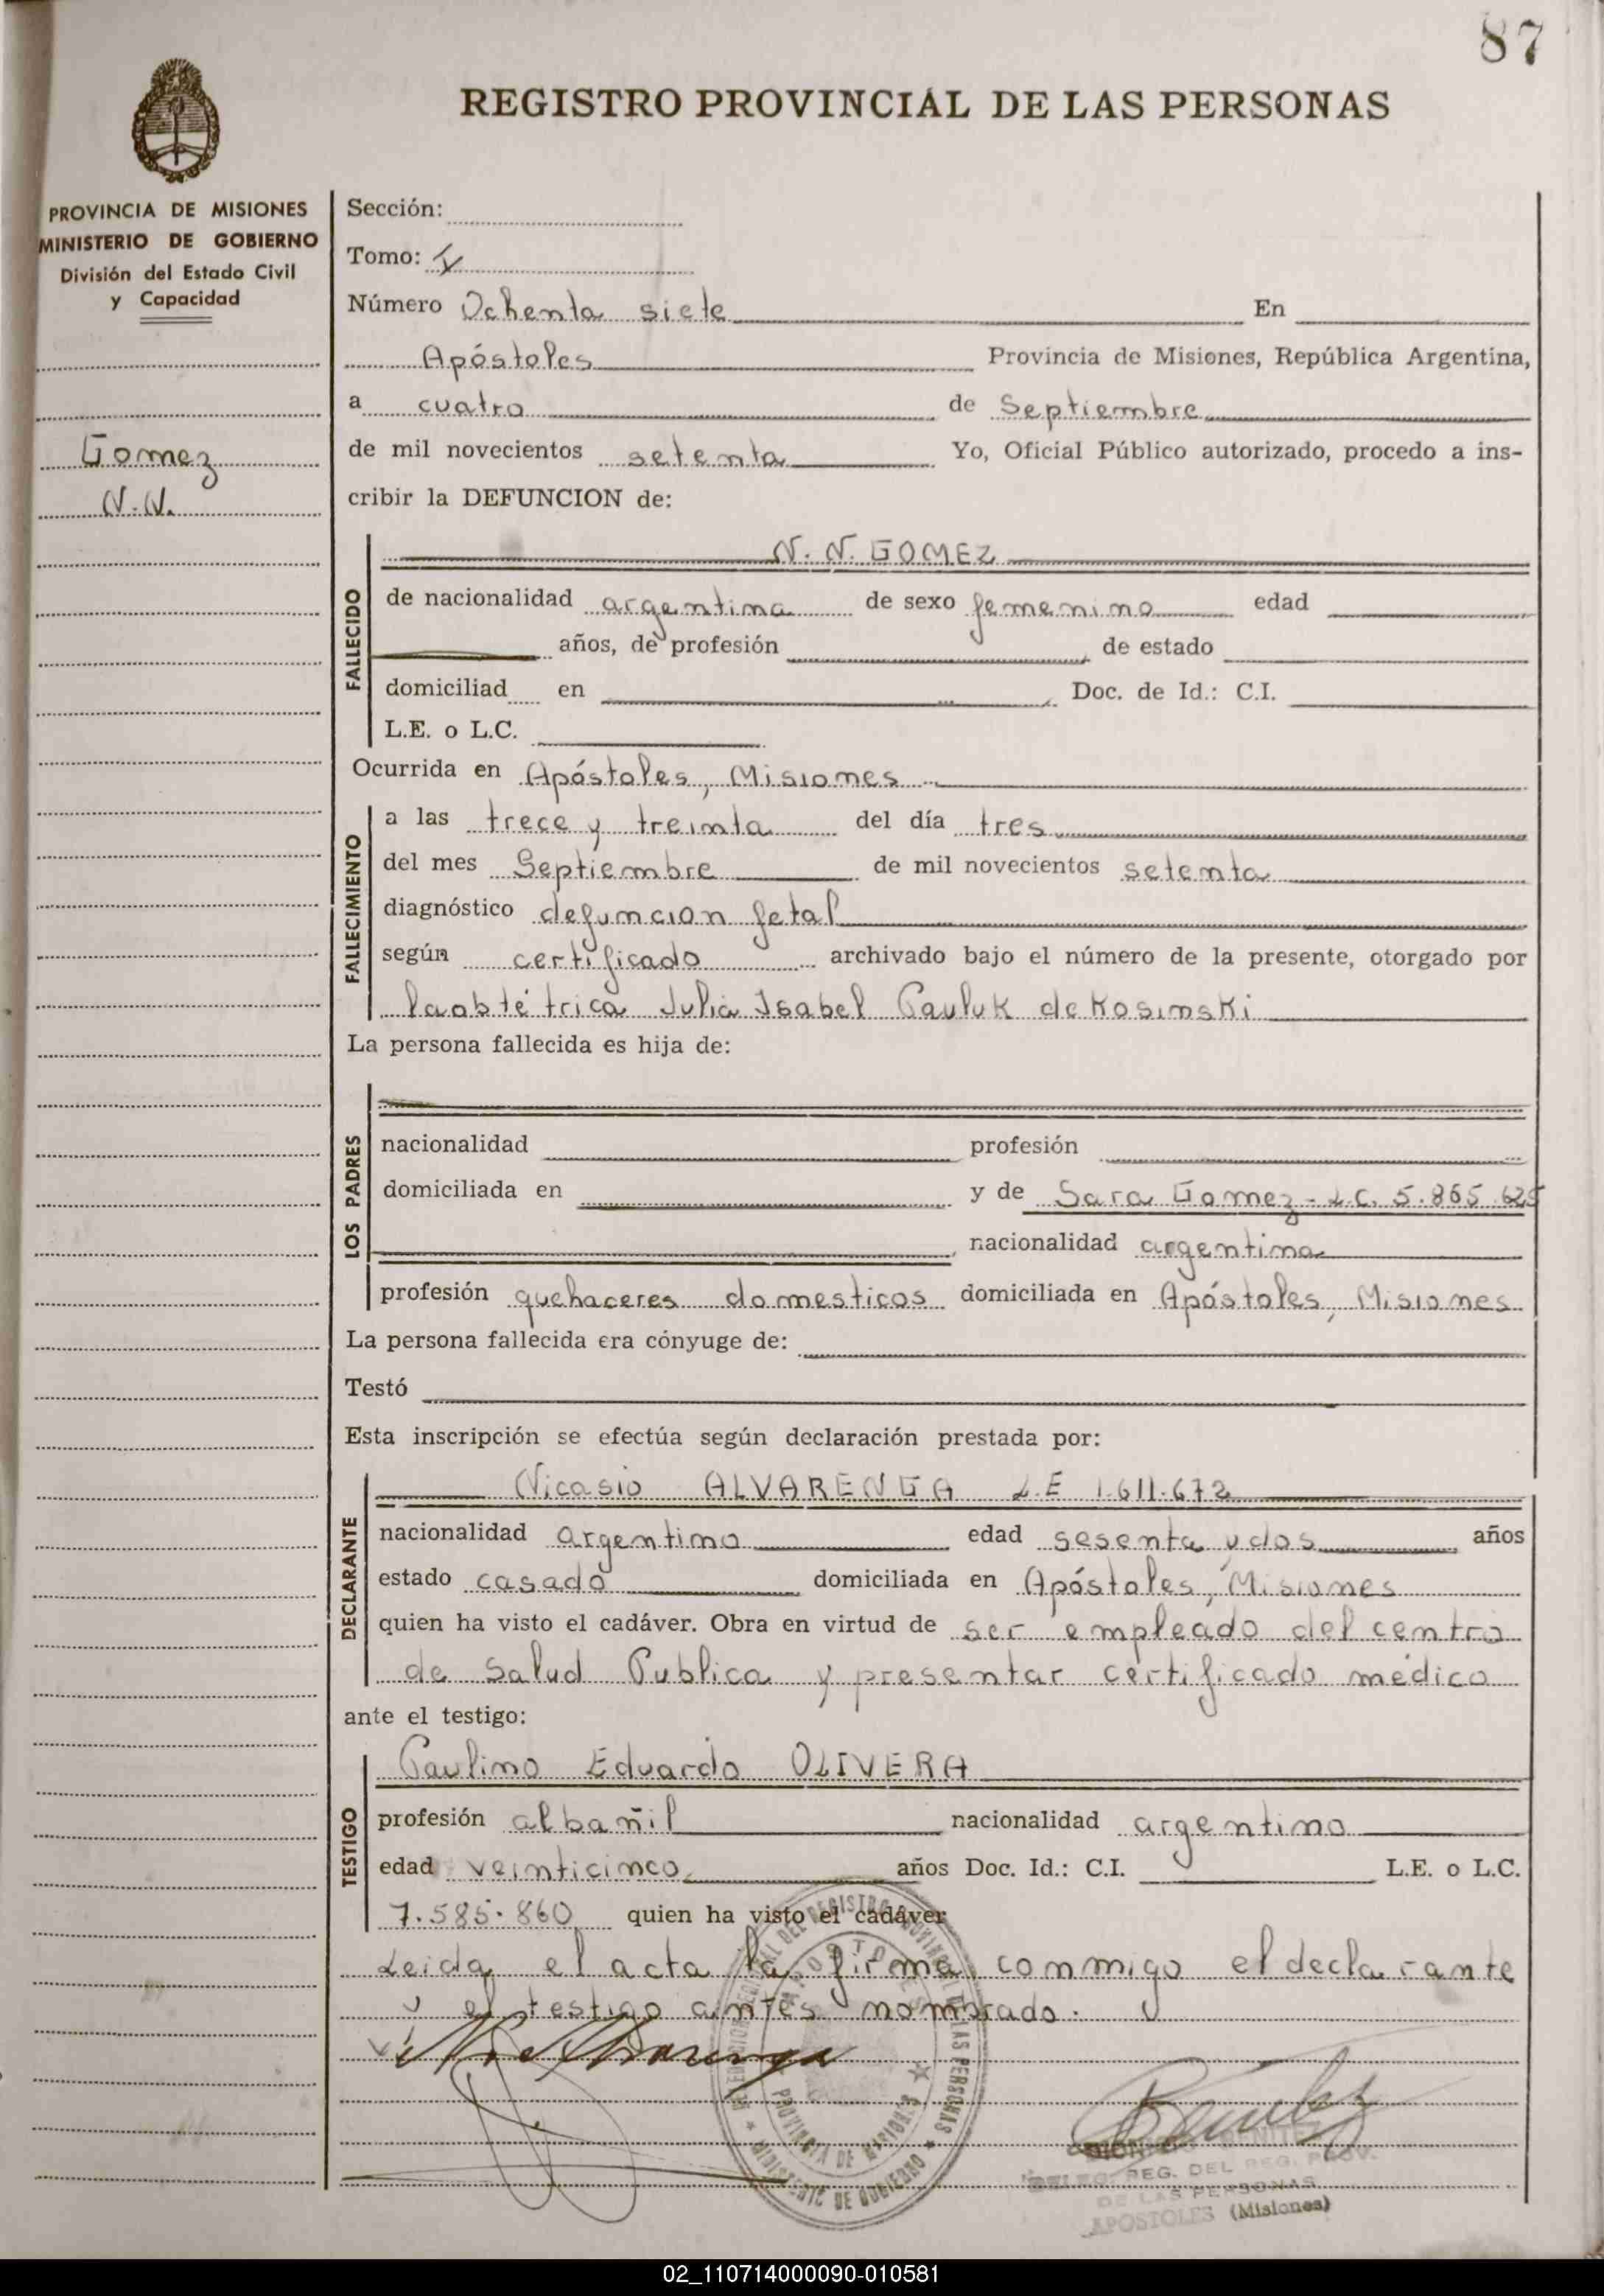 87
REGISTRO PROVINCIAL DE LAS PERSONAS
PROVINCIA DE MISIONES
MINISTERIO DE GOBIERNO
División del Estado Civil
y Capacidad
Gomez
N.N.
Sección:
Tomo: I
Número Ochenta siete En
Apóstoles Provincia de Misiones, República Argentina,
a cuatro de Septiembre
de mil novecientos setenta Yo, Oficial Público autorizado, procedo a ins-
cribir la DEFUNCION de:
FALLECIDO
N. N. GOMEZ
de nacionalidad argentina de sexo femenino edad
años, de profesión de estado
domiciliad en Doc. de Id.: C.I.
L.E. o L.C.
Ocurrida en Apóstoles, Misiones
FALLECIMIENTO
a las trece y treinta del día tres
del mes Septiembre de mil novecientos setenta
diagnóstico defuncion fetal
según certificado archivado bajo el número de la presente, otorgado por
la obtétrica Julia Isabel Pauluk de Kosinski
La persona fallecida es hija de:
LOS PADRES
nacionalidad profesión
domiciliada en y de Sara Gomez - L.C. 5.865.625
nacionalidad argentina
profesión quehaceres domesticos domiciliada en Apóstoles, Misiones
La persona fallecida era cónyuge de:
Testó
Esta inscripción se efectúa según declaración prestada por:
DECLARANTE
Nicasio ALVARENGA L.E 1.611.672
nacionalidad argentino edad sesenta y dos años
estado casado domiciliada en Apóstoles, Misiones
quien ha visto el cadáver. Obra en virtud de ser empleado del centro
de Salud Publica y presentar certificado médico
ante el testigo:
TESTIGO
Paulino Eduardo OLIVERA
profesión albañil nacionalidad argentino
edad veinticinco años Doc. Id.: C.I. L.E. o L.C.
7.585.860 quien ha visto el cadáver
Leida el acta la firma conmigo el declarante
y el testigo antes nombrado.
Nic Alvarenga
Benitez
DIONICIO BENITEZ
DELEG. REG. DEL REG. PROV.
DE LAS PERSONAS
APOSTOLES (Misiones)
APOSTOLES
PROVINCIA DE MISIONES
MINISTERIO DE GOBIERNO
02_110714000090-010581